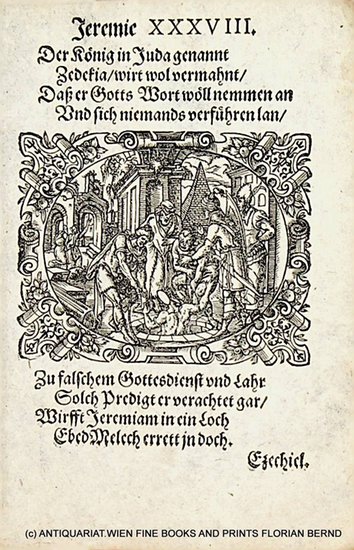 Jeremie XXXVIII.
Der König in Juda genannt
Zedekia/wirt wol vermahnt/
Daß er Gotts Wort wöll nemmen an
Vnd sich niemands verführen lan/
Zu falschem Gottesdienst vnd Lahr
Solch Predigt er verachtet gar/
Wirfft Jeremiam in ein Loch
EbedMelech errett jn doch.
Ezechiel.
(c) ANTIQUARIAT.WIEN FINE BOOKS AND PRINTS FLORIAN BERND